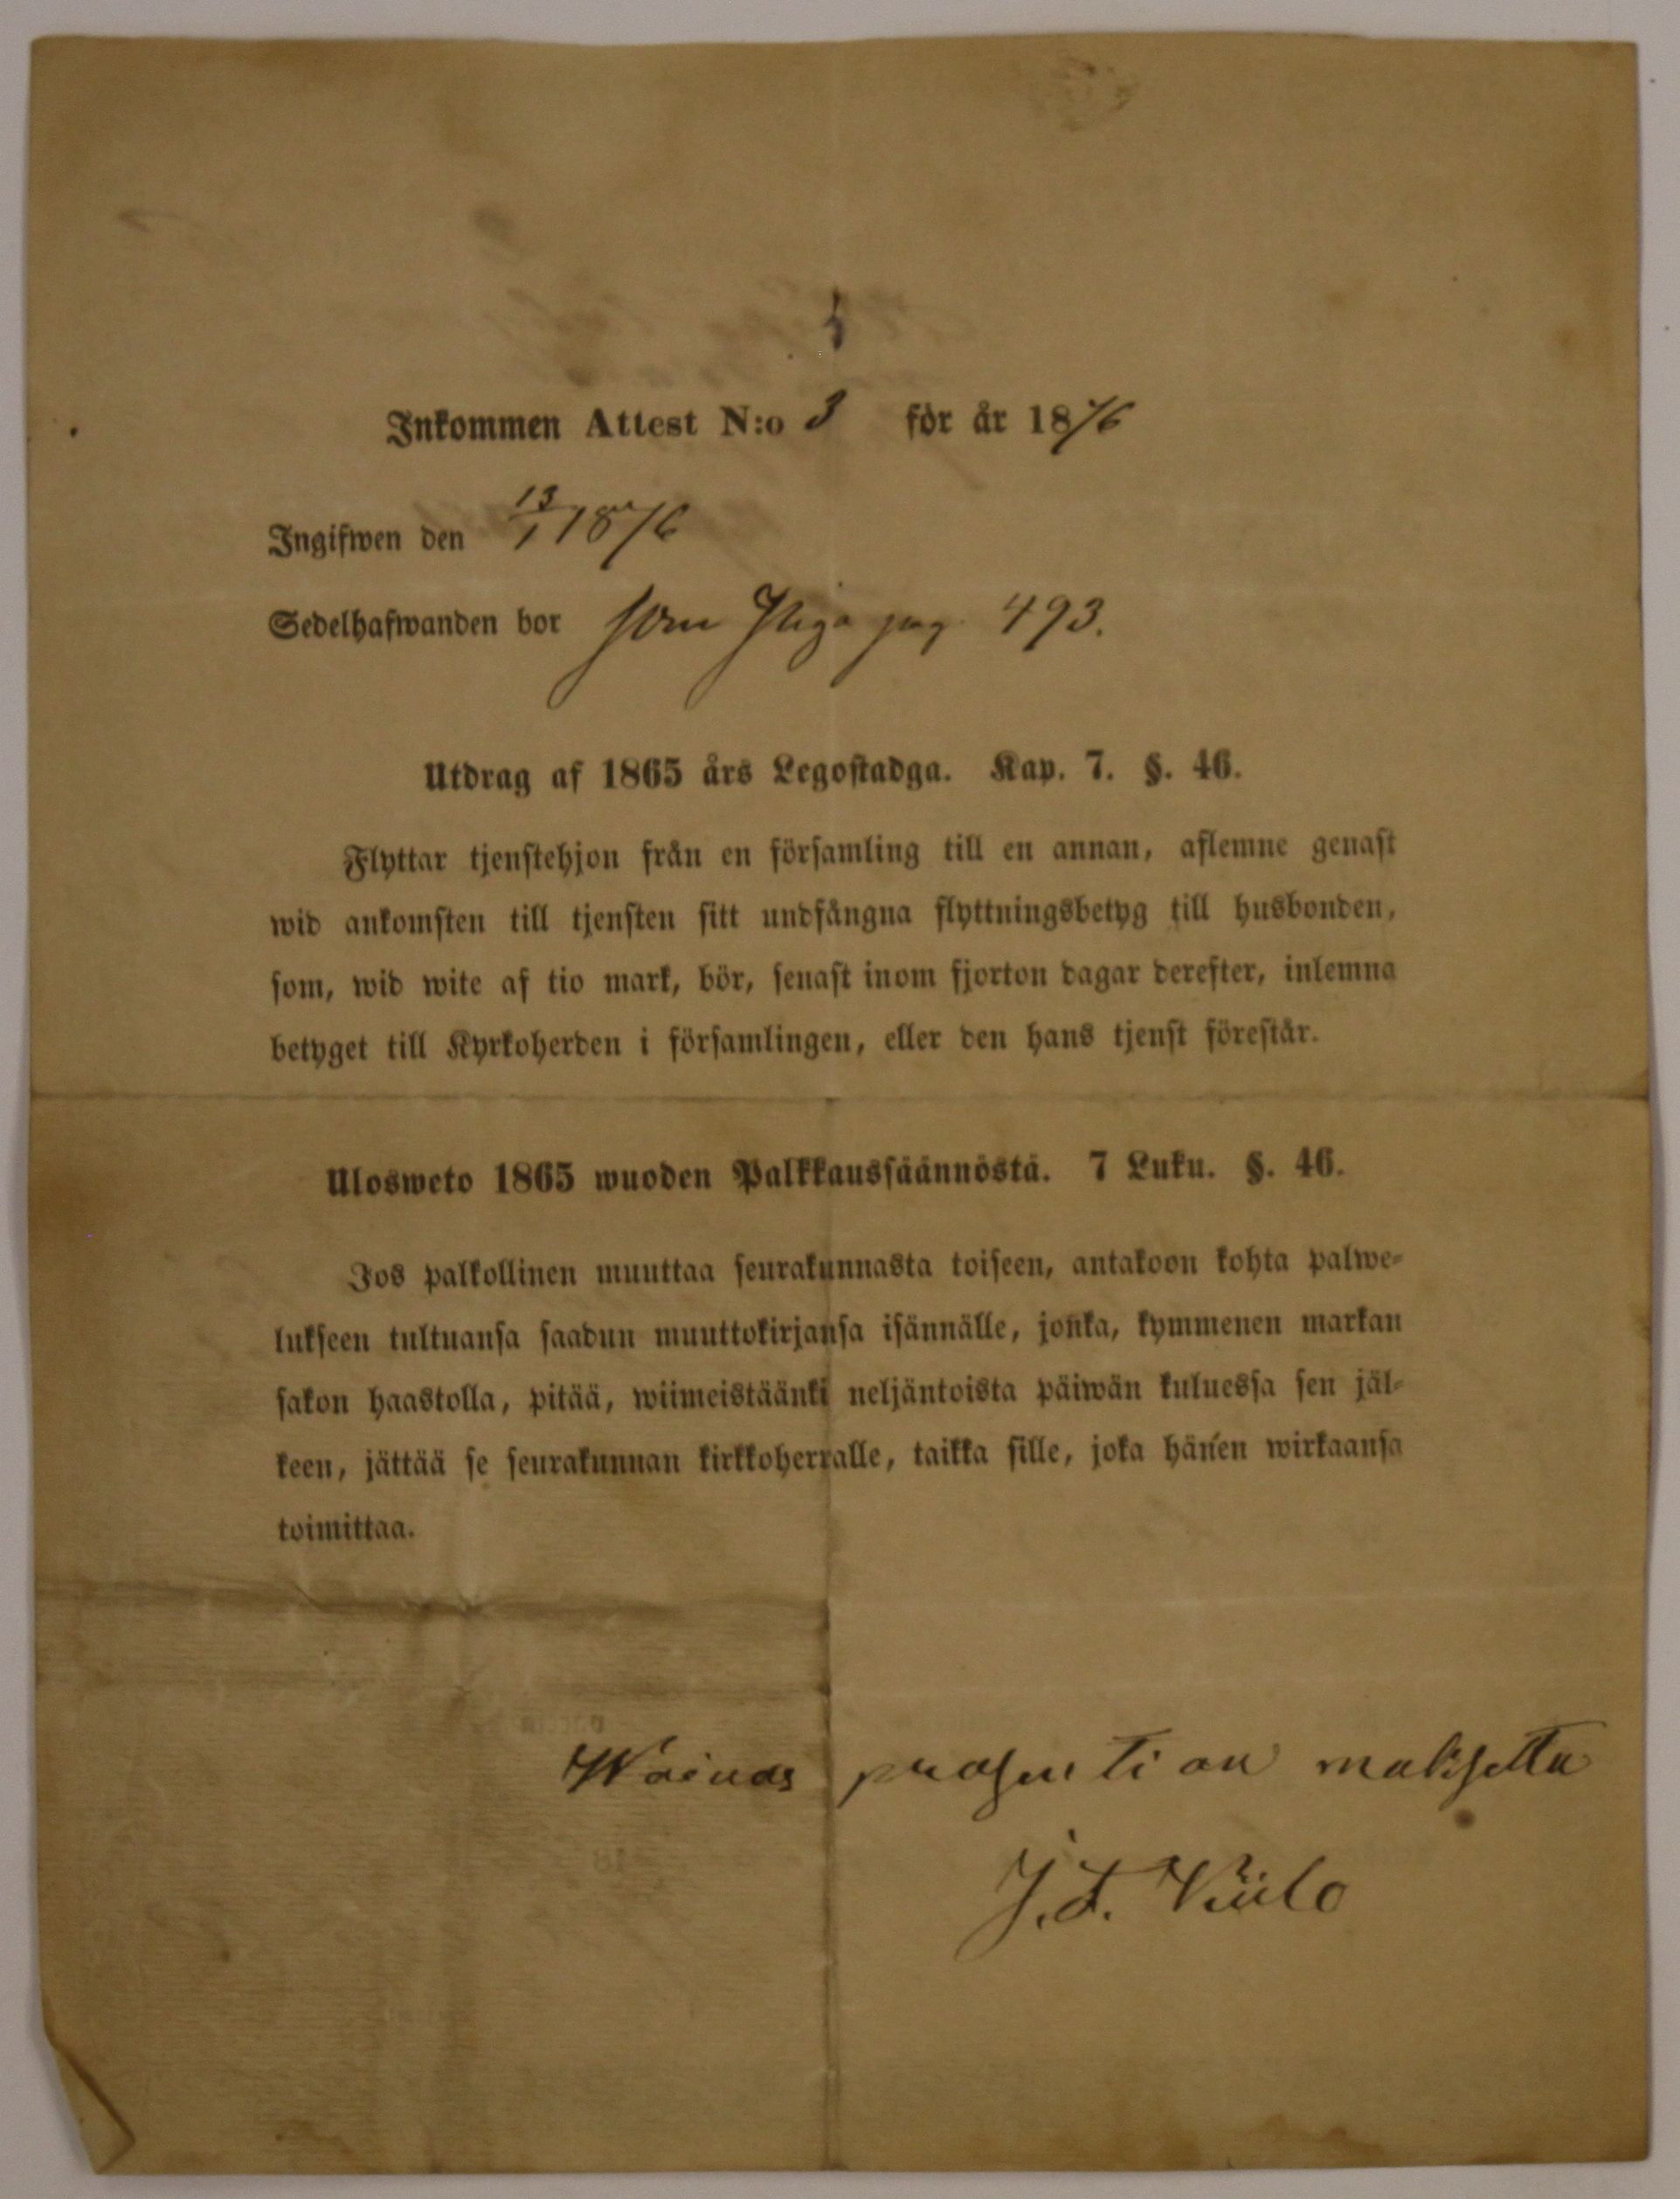 Inkommen Attest N:o 3 för år 1876
Ingifwen den 13/1 1876
Sedelhafwanden bor som Piga pag. 493.
Utdrag af 1865 års Legostadga. Kap. 7. §. 46.
Flyttar tjenstehjon från en församling till en annan, aflemne genast
wid ankomsten till tjensten sitt undfångna flyttningsbetyg till husbonden,
som, wid wite af tio mark, bör, senast inom fjorton dagar derefter, inlemna
betyget till Kyrkoherden i församlingen, eller den hans tjenst förestår.
Ulosweto 1865 wuoden Palkkaussäännöstä. 7 Luku. §. 46.
Jos palkollinen muuttaa seurakunnasta toiseen, antakoon kohta palwe-
lukseen tultuansa saadun muuttokirjansa isännälle, jonka, kymmenen markan
sakon haastolla, pitää, wiimeistäänki neljäntoista päiwän kuluessa sen jäl-
keen, jättää se seurakunnan kirkkoherralle, taikka sille, joka hänen wirkaansa
toimittaa.
on maksettu
J. F.